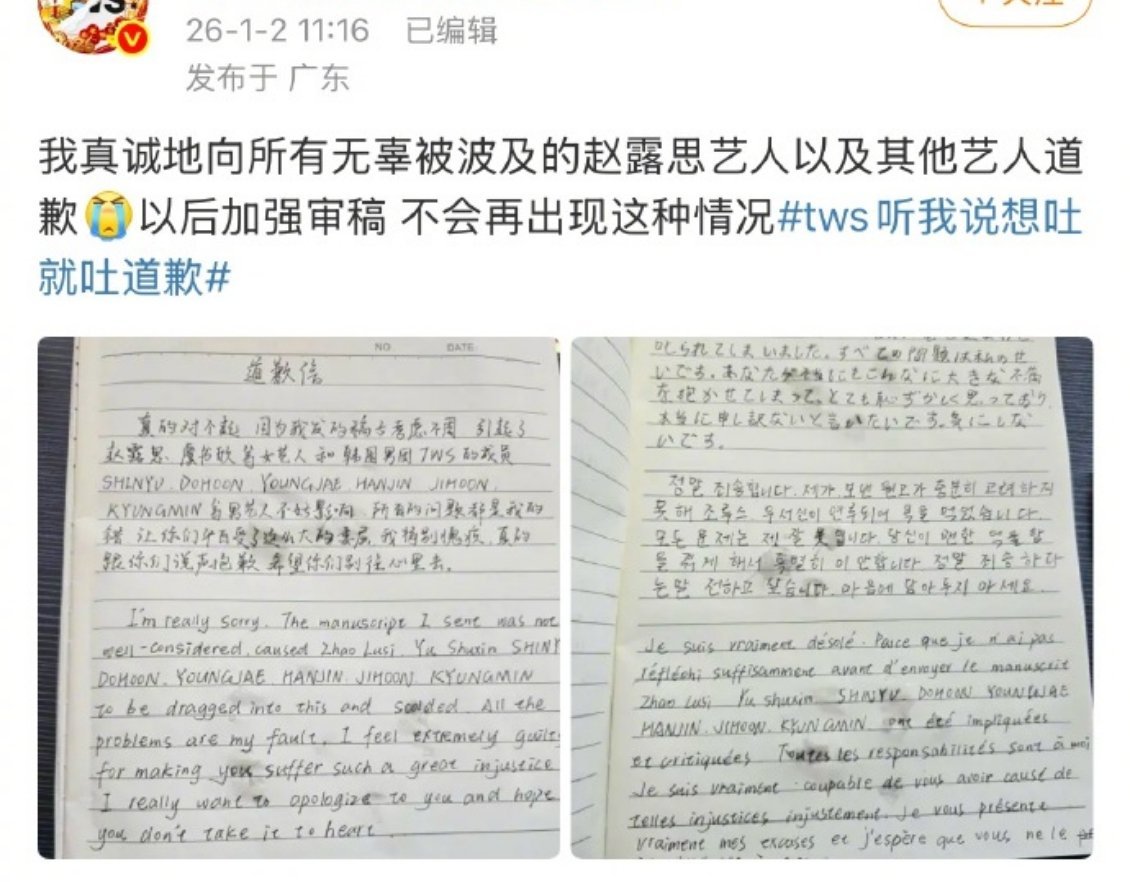 26-1-2 11:16 已编辑
发布于 广东
我真诚地向所有无辜被波及的赵露思艺人以及其他艺人道
歉😭以后加强审稿 不会再出现这种情况#tws听我说想吐
就吐道歉#
NO. DATE.
道歉信
真的对不起 因为我发的稿子考虑不周 引起了
赵露思、虞书欣等女艺人和韩国男团TWS的成员
SHINYU. DOHOON. YOUNGJAE. HANJIN. JIHOON.
KYUNGMIN 等男艺人不好影响 所有的问题都是我的
错 让你们 受了这么大的 我特别愧疚,真的
跟你们说声抱歉 希望你们别往心里去。
I'm really sorry. The manuscript I sent was not
well-considered, caused Zhao Lusi, Yu Shuxin SHINY
DOHOON. YOUNGJAE. HANJIN. JIHOON. KYUNGMIN
to be dragged into this and scolded. All the
problems are my fault. I feel extremely guilt
for making you suffer such a great injustice
I really want to apologize to you and hope
you don't take it to heart.
叱られてしまいました。すべての問題は私のせ
いです。あなた にもこんなに大きな不満
を抱かせてしまって、とても恥ずかしく思っており
本当に申し訳ないと言いたいです。気にしな
いです。
정말 죄송합니다. 제가 보낸 원고가 충분히 고려하지
못해 조루스, 우서신이 연루되어 욕을 먹었습니다.
모든 문제는 제 잘못입니다. 당신이 억울함
을 하게 해서 특별히 미안합니다. 정말 죄송하다
는말 전하고 싶습니다. 마음에 담아두지 마세요.
Je suis vraiment désolé. Parce que je n'ai pas
réfléchi suffisamment avant d'envoyer le manuscrit
Zhao Lusi, Yu shuxin, SHINYU DOHOON YOUNGJAE
HANJIN. JIHOON. KYUNGMIN ont été impliquées
et critiquées Toutes les responsabilités sont à moi
Je suis vraiment coupable de vous avoir causé de
telles injustices injustement. Je vous présente
vraiment mes excuses et j'espère que vous ne le